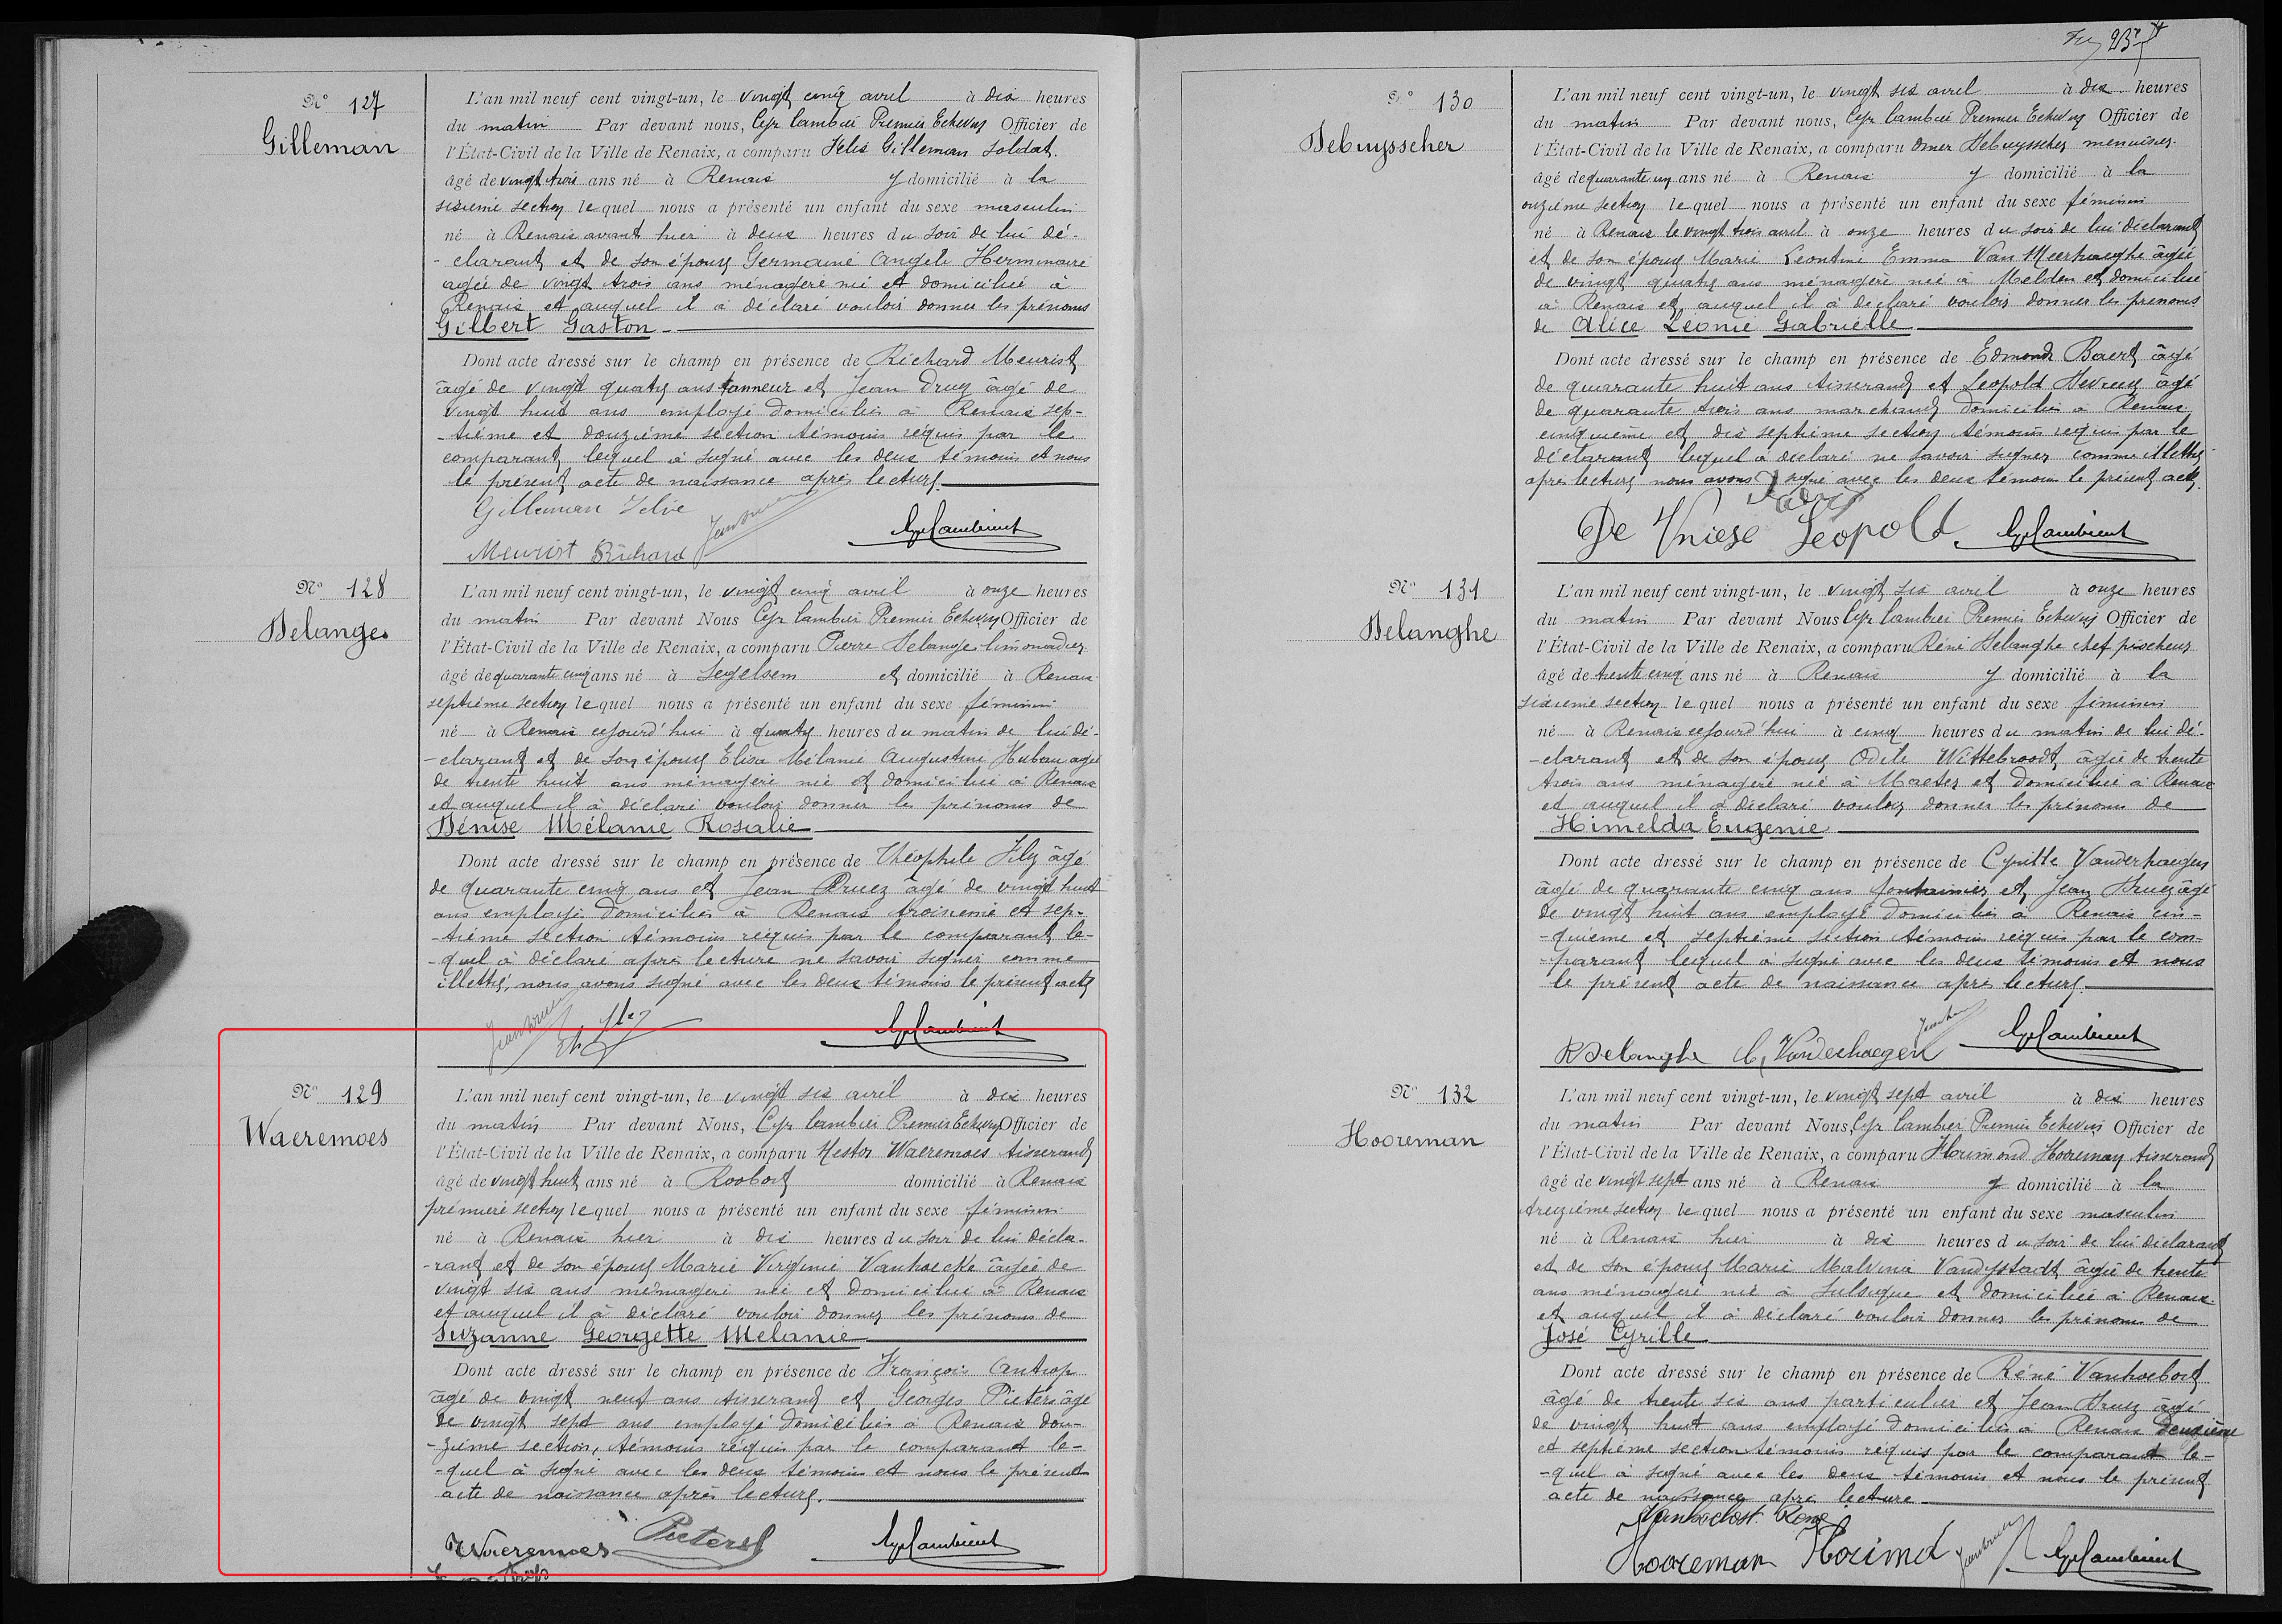 Fey 23 7
N° 127
Gilleman
L'an mil neuf cent vingt-un, le vingt cinq avril à dix heures
du matin Par devant nous, Cyr Cambier Premier Echevin Officier de
l'État-Civil de la Ville de Renaix, a comparu Felix Gilleman soldat
âgé de vingt trois ans né à Renaix y domicilié à la
sixième section lequel nous a présenté un enfant du sexe masculin
né à Renaix avant hier à deux heures du soir de lui dé-
-clarant et de son épouse Germaine Angèle Herminaire
agée de vingt trois ans ménagère née et domiciliée à
Renaix et auquel il à déclaré vouloir donner les prénoms
Gilbert Gaston
Dont acte dressé sur le champ en présence de Richard Meurist
âgé de vingt quatre ans tanneur et Jean Druez âgé de
vingt huit ans employé domiciliés à Renaix sep-
-tième et douzième section témoins requis par le
comparant, lequel à signé avec les deux témoins et nous
le présent acte de naissance après lecture.
Gilleman Félix
Meurist Richard Jean Druez Cyr Cambier
N° 128
Delange
L'an mil neuf cent vingt-un, le vingt cinq avril à onze heures
du matin Par devant Nous Cyr Cambier Premier Echevin Officier de
l'État-Civil de la Ville de Renaix, a comparu Pierre Delange limonadier
âgé de quarante cinq ans né à Segelsem et domicilié à Renaix
septième section lequel nous a présenté un enfant du sexe féminin
né à Renaix cejourd'hui à quatre heures du matin de lui dé-
-clarant et de son épouse Elisa Mélanie Augustine Hubeau agée
de trente huit ans ménagère née et domiciliée à Renaix
et auquel il à déclaré vouloir donner les prénoms de
Dénise Mélanie Rosalie
Dont acte dressé sur le champ en présence de Théophile Fley âgé
de quarante cinq ans et Jean Druez âgé de vingt huit
ans employé domiciliés à Renaix troisième et sep-
-tième section témoins requis par le comparant le-
-quel à déclaré après lecture ne savoir signer comme
illettré, nous avons signé avec les deux témoins le présent acte
Jean Druez Th Cyr Cambier
N° 129
Waeremoes
L'an mil neuf cent vingt-un, le vingt six avril à dix heures
du matin Par devant Nous, Cyr Cambier Premier Echevin Officier de
l'État-Civil de la Ville de Renaix, a comparu Nestor Waeremoes tisserand
âgé de vingt huit ans né à Roobort domicilié à Renaix
première section lequel nous a présenté un enfant du sexe féminin
né à Renaix hier à dix heures du soir de lui décla-
-rant et de son épouse Marie Virginie Vanhoecke âgée de
vingt six ans ménagère née et domiciliée à Renaix
et auquel il à déclaré vouloir donner les prénoms de
Suzanne Georgette Mélanie
Dont acte dressé sur le champ en présence de François Cantrop
âgé de vingt neuf ans tisserand et Georges Pieters âgé
de vingt sept ans employé domiciliés à Renaix dou-
-zième section, témoins requis par le comparant le-
-quel à signé avec les deux témoins et nous le présent
acte de naissance après lecture.
Waeremoes Pieters Cyr Cambier
N° 130
Debuysscher
L'an mil neuf cent vingt-un, le vingt six avril à dix heures
du matin Par devant nous, Cyr Cambier Premier Echevin Officier de
l'État-Civil de la Ville de Renaix, a comparu Omer Debuysscher menuisier
âgé de quarante un ans né à Renaix y domicilié à la
onzième section lequel nous a présenté un enfant du sexe féminin
né à Renaix le vingt trois avril à onze heures du soir de lui déclarant
et de son épouse Marie Léontine Emma Van Meerhaeghe âgée
de vingt quatre ans ménagère née à Melden et domiciliée
à Renaix et auquel il à déclaré vouloir donner les prénoms
de Alice Léonie Gabriëlle
Dont acte dressé sur le champ en présence de Edmond Baert âgé
de quarante huit ans tisserand et Leopold Devriese âgé
de quarante trois ans marchand domiciliés à Renaix
cinquième et dix septième section témoins requis par le
déclarant lequel à déclaré ne savoir signer comme illettré
après lecture nous avons signé avec les deux témoins le présent acte
De Vriese Léopold. Cyr Cambier
N° 131
Delanghe
L'an mil neuf cent vingt-un, le vingt six avril à onze heures
du matin Par devant Nous Cyr Cambier Premier Echevin Officier de
l'État-Civil de la Ville de Renaix, a comparu Réné Delanghe chef piocheur
âgé de trente cinq ans né à Renaix y domicilié à la
sixième section lequel nous a présenté un enfant du sexe féminin
né à Renaix cejourd'hui à cinq heures du matin de lui dé-
-clarant et de son épouse Odile Wittebroodt, âgée de trente
trois ans ménagère née à Maeter et domiciliée à Renaix
et auquel il à déclaré vouloir donner les prénoms de
Himelda Eugenie
Dont acte dressé sur le champ en présence de Cyrille Vanderhaegen
âgé de quarante cinq ans fontainier et Jean Druez âgé
de vingt huit ans employé domiciliés à Renaix cin-
-quième et septième section témoins requis par le com-
-parant lequel à signé avec les deux témoins et nous
le présent acte de naissance après lecture.
R Delanghe C. Vanderhaegen Cyr Cambier
N° 132
Hooreman
L'an mil neuf cent vingt-un, le vingt sept avril à dix heures
du matin Par devant Nous, Cyr Cambier Premier Echevin Officier de
l'État-Civil de la Ville de Renaix, a comparu Florimond Hooreman tisserand
âgé de vingt sept ans né à Renaix y domicilié à la
treizième section lequel nous a présenté un enfant du sexe masculin
né à Renaix hier à dix heures du soir de lui déclarant
et de son épouse Marie Malvina Vandystadt âgée de trente
ans ménagère née à Sulsique et domiciliée à Renaix
et auquel il à déclaré vouloir donner les prénoms de
José Cyrille
Dont acte dressé sur le champ en présence de Réné Vanhoebost
âgé de trente six ans particulier et Jean Druez âgé
de vingt huit ans employé domiciliés à Renaix deuxième
et septième section témoins requis par le comparant le-
-quel à signé avec les deux témoins et nous le présent
acte de naissance après lecture
Vanhoebost René
Hooreman Florimd Cyr Cambier